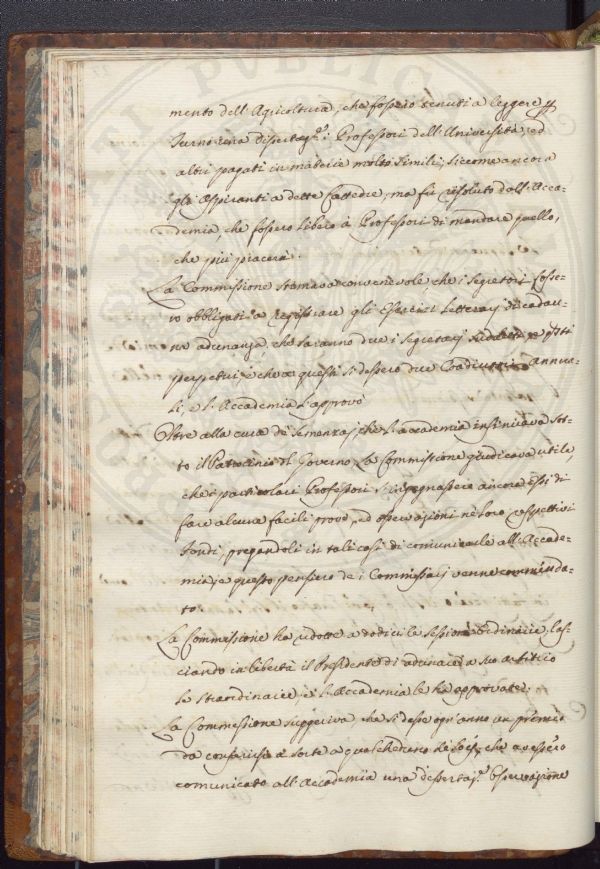 mento dell'Agricoltura, che fossero tenuti a leggere p
turno una dissertaz.e i Professori dell'Università, ed
altri pagati in materie molto simili, siccome ancora
gli Aspiranti a dette Cattedre, ma fù risoluto dall'Acca-
demia, che fossero liberi i Professori di mandare quello,
che più piacerà.
La Commissione stimava convenevole, che i segretarj fosse-
ro obbligati a registrare gli Esercizi letterarj di cadau-
na adunanza, che saranno due i segretarj
perpetui, e che a questi si dessero due Coadiutori annua-
li, e l'Accademia l'approvò
Oltre alla cura de' Semenzaj, che l'Accademia insinuava sot-
to il Patrocinio del Governo, La Commissione giudicava utile,
che i particolari Professori s'impegnassero ancora essi di
fare alcune facili prove, ed operazioni ne' loro rispettivi
fondi, pregandoli in tali casi di comunicarle all'Accade-
mia, e questo pensiero de i Commissarj venne commenda-
to
La Commissione ha ridotte a dodici le sessioni ordinarie, las-
ciando in libertà il Presidente di adunare a suo arbitrio
le straordinarie, e l'Accademia le ha approvate.
La Commissione suggeriva, che si desse ogn'anno un premio
da conferirsi a sorte a qualcheduno de' Socj, che avessero
comunicato all'Accademia una dissertaz.e Osservazione